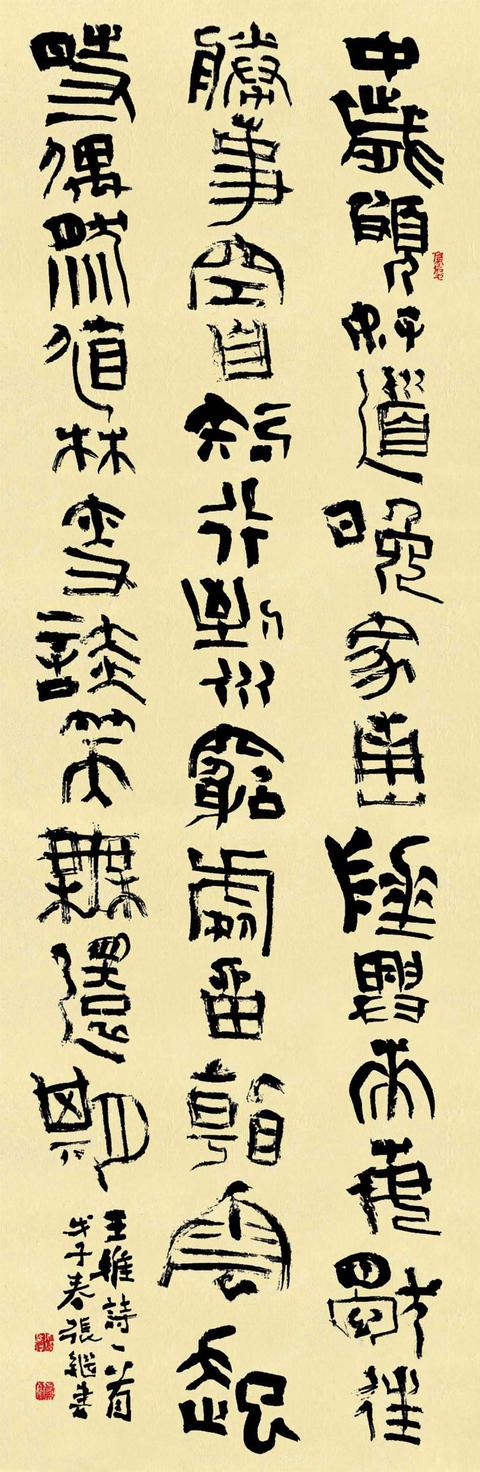 中歲頗好道晚家南山陲興來每獨往
勝事空自知行到水窮處坐看雲起
時偶然值林叟談笑無還期
王維詩一首
戊子春張繼書